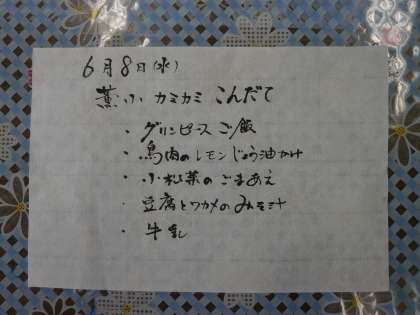 6月8日(水)
薫小 カミカミ こんだて
・グリンピースご飯
・鳥肉のレモンじょう油かけ
・小松菜のごまあえ
・豆腐とワカメのみそ汁
・牛乳